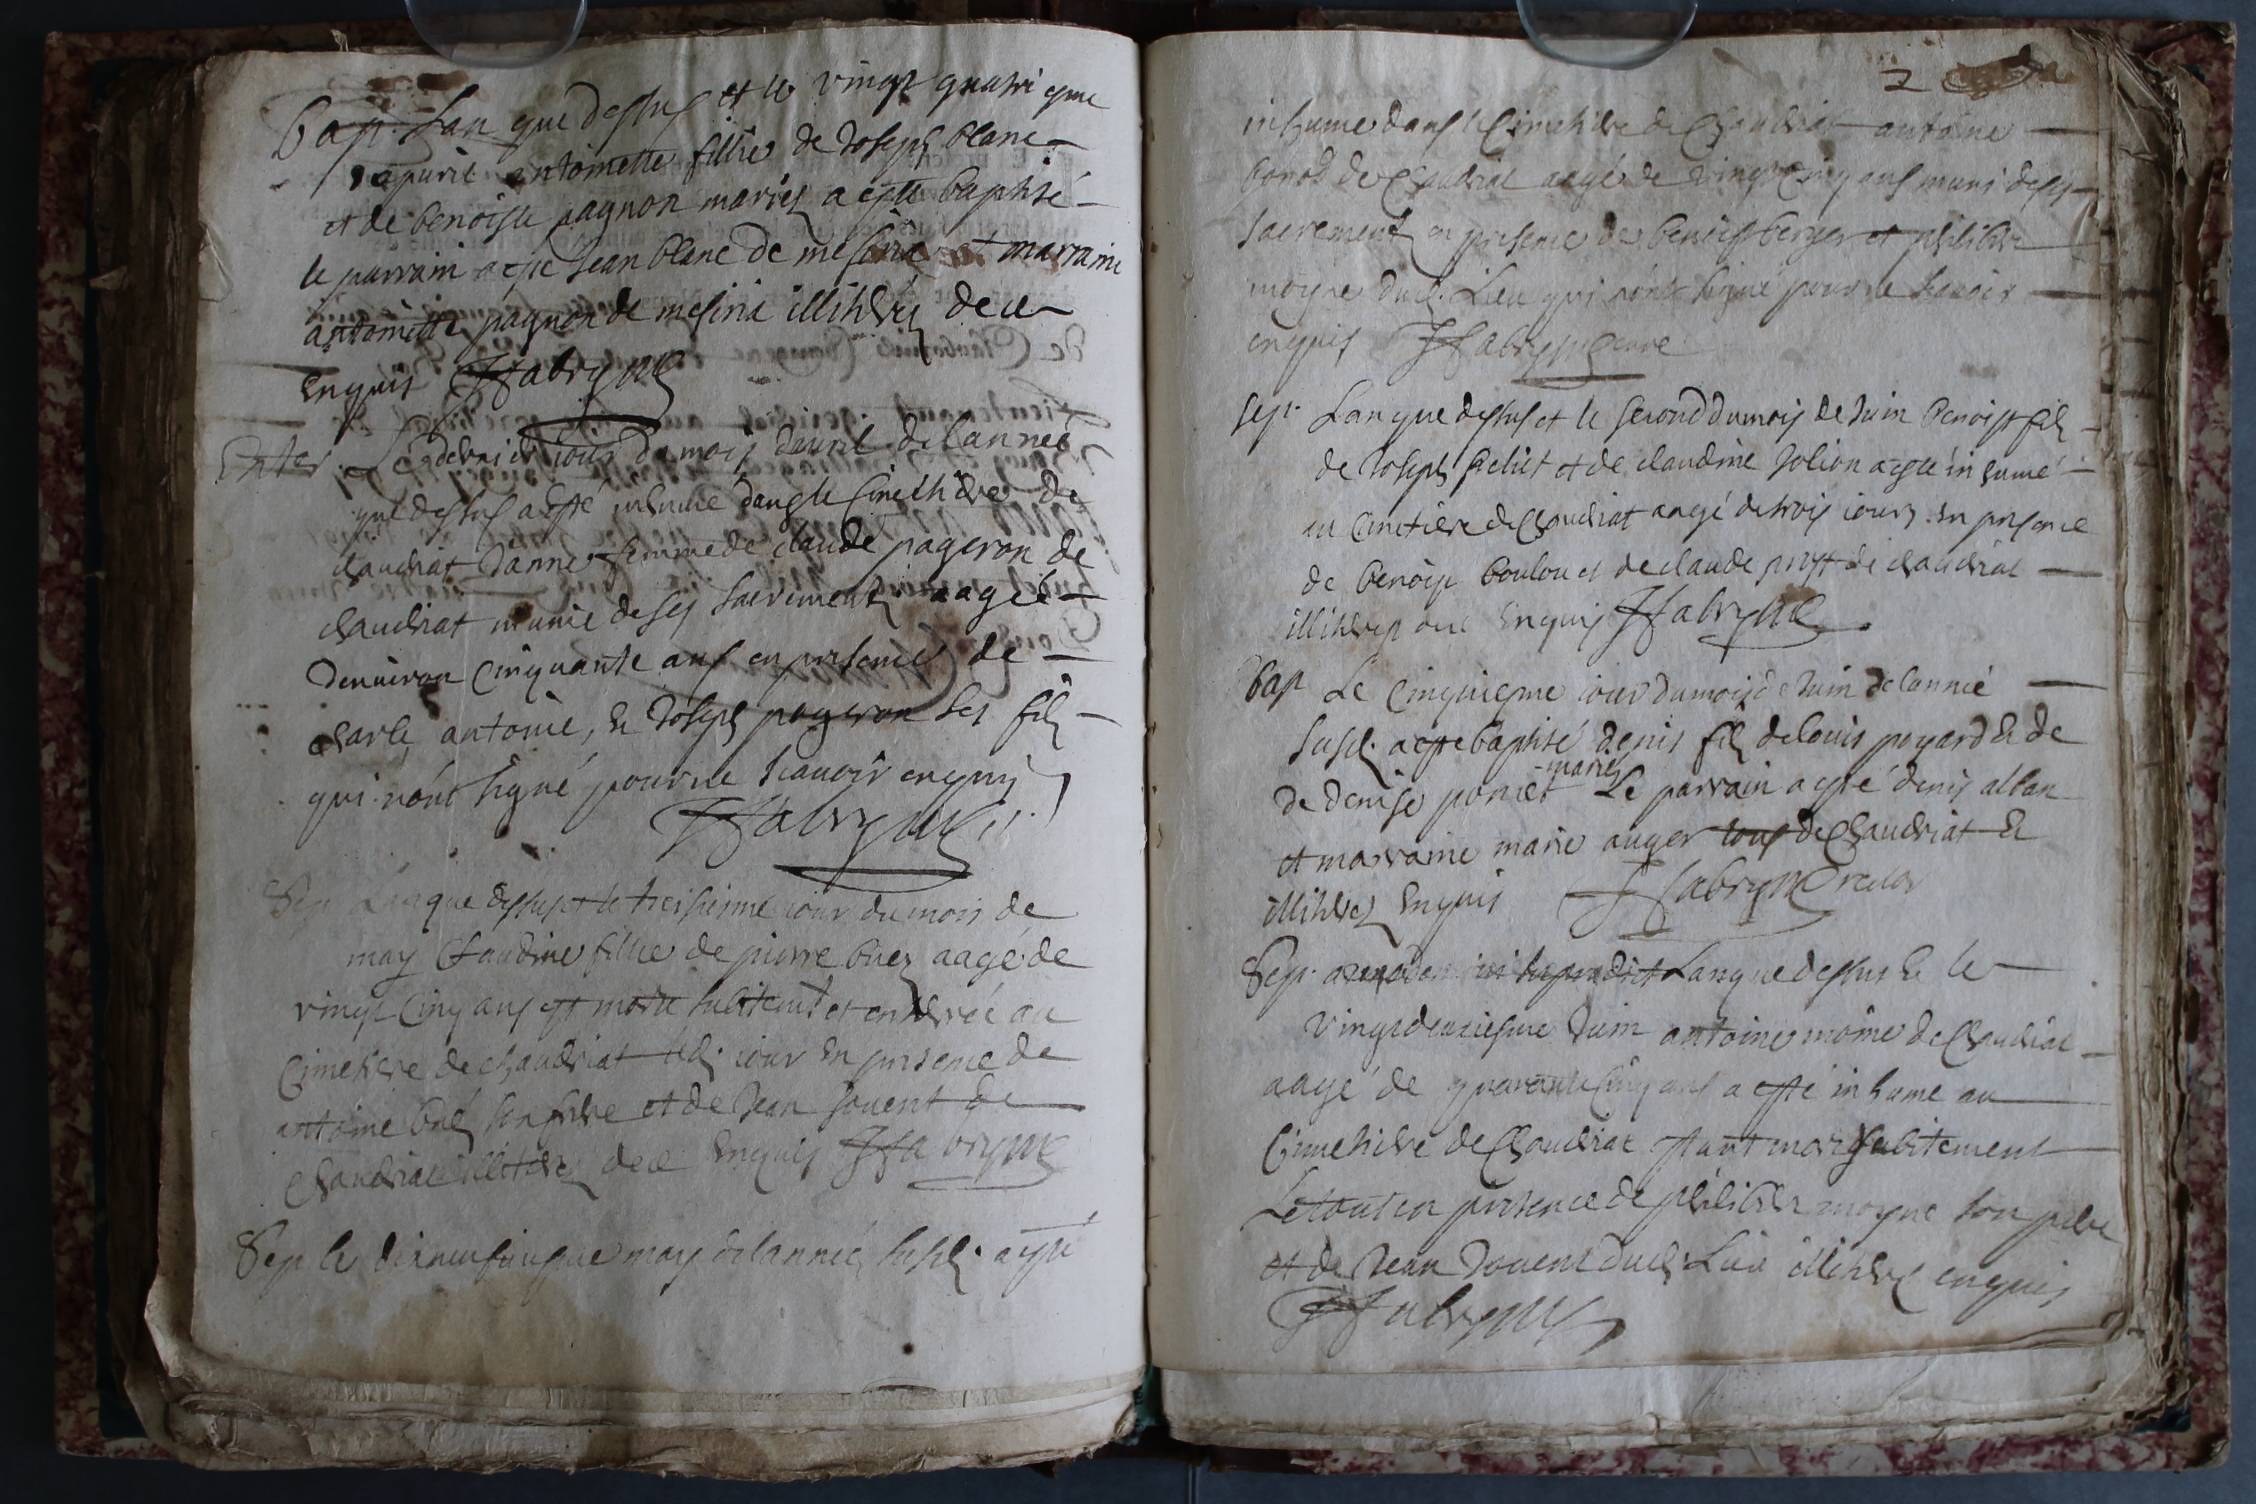 Bap. Lan que dessus et le vingt quatriesme
apvril antoinette fillie de Joseph blanc
et de benoiste pagnon mariez a esté baptisé
le parrain a esté Jean blanc de mesiria et marraine
antoinette pagnon de mesiria illitérés de ce
enquis
Enter. Le dernier jour du mois d'avril de lannee
que dessus a esté inhumé dans le Cimethiere de
chaudriat Janne femme de claude pageron de
chaudriat munie de ses sacrements aagée
denviron Cinquante ans en presence de
charle, antoine, et Joseph pageron ses filz
qui n'ont signé pour ne scavoir enquis
Sep. Lan que dessus et le treisiesme jour du mois de
may Claudine fillie de pierre buez aagé de
vingt Cinq ans est morte subitemt et enterrée au
Cimethiere de chaudriat led. jour en presence de
antoine buez son frere et de Jean Jouent de
Chaudriat illiteres de ce enquis
Sep le dixneufviesme may de lannee susd. a esté
2
inhume dans le Cimethiere de Chaudriat antoine
de Chaudriat aagé de vingt Cinq ans muni de ses
sacrements en presence de benoist berger et philibert
moyne dud. Lieu qui n'ont signé pour ne scavoir
enquis
sep. Lan que dessus et le second du mois de Juin Benoist filz
de Joseph et de claudine Jolion a esté inhumé
au Cimetiere de Chaudriat aagé de trois jours en presence
de benoist boulou et de claude prost de chaudriat
illiteres de ce Enquis
bap Le Cinquiesme jour du mois de Juin de lannée
susd. a esté baptisé denis filz de louis poyard et de
de denise poncet mariez Le parrain a esté denis alban
et marraine marie auger tous de Chaudriat et
illiterez Enquis
Sep. Lan que dessus et le
vingt deuxiesme Juin antoine moine de Chaudriat
aagé de quarante Cinq ans a esté inhume au
Cimethiere de Chaudriat estant mort subitement
Le tout en presence de philibert moyne son pere
et de Jean Jouent dud. Lieu illiteres enquis